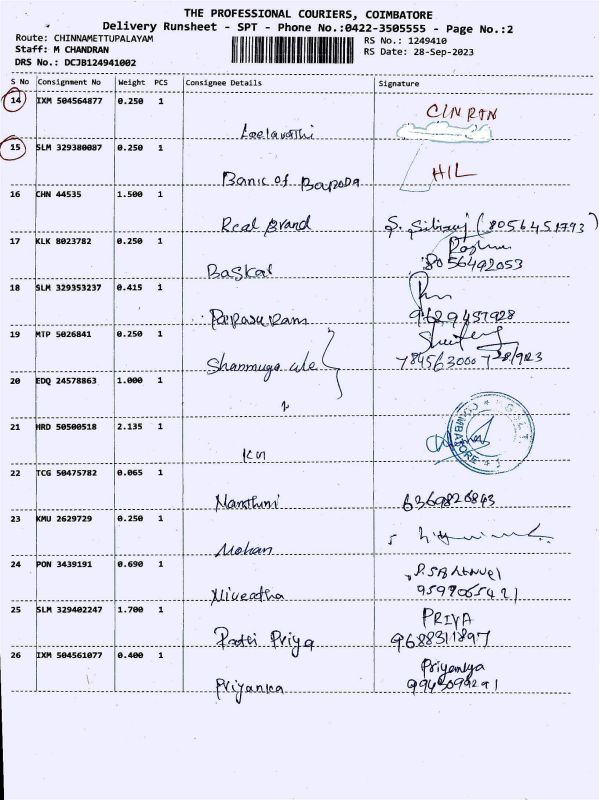 THE PROFESSIONAL COURIERS, COIMBATORE
Delivery Runsheet - SPT - Phone No.:0422-3505555 - Page No.:2
Route: CHINNAMETTUPALAYAM
RS No.: 1249410
Staff: M CHANDRAN
RS Date: 28-Sep-2023
DRS No.: DCJB124941002
S No Consignment No Weight PCS Consignee Details Signature
14 IXM 504564877 0.250 1
CINRTN
Leelavathi
15 SLM 329380087 0.250 1
HIL
Bank of Baroda
16 CHN 44535 1.500 1
Real Brand
17 KLK 8023782 0.250 1
Baskar
8056492053
18 SLM 329353237 0.415 1
Parasuram 9629457928
19 MTP 5026841 0.250 1
Shanmuga
20 EDQ 24578863 1.000 1
21 HRD 50500518 2.135 1
COIMBATORE
KM
22 TCG 50475782 0.065 1
6369826843
23 KMU 2629729 0.250 1
Mohan
24 PON 3439191 0.690 1
Niveatha
25 SLM 329402247 1.700 1
PRIYA
Priya 9688311897
26 IXM 504561077 0.400 1
Priyanka
Priyanka